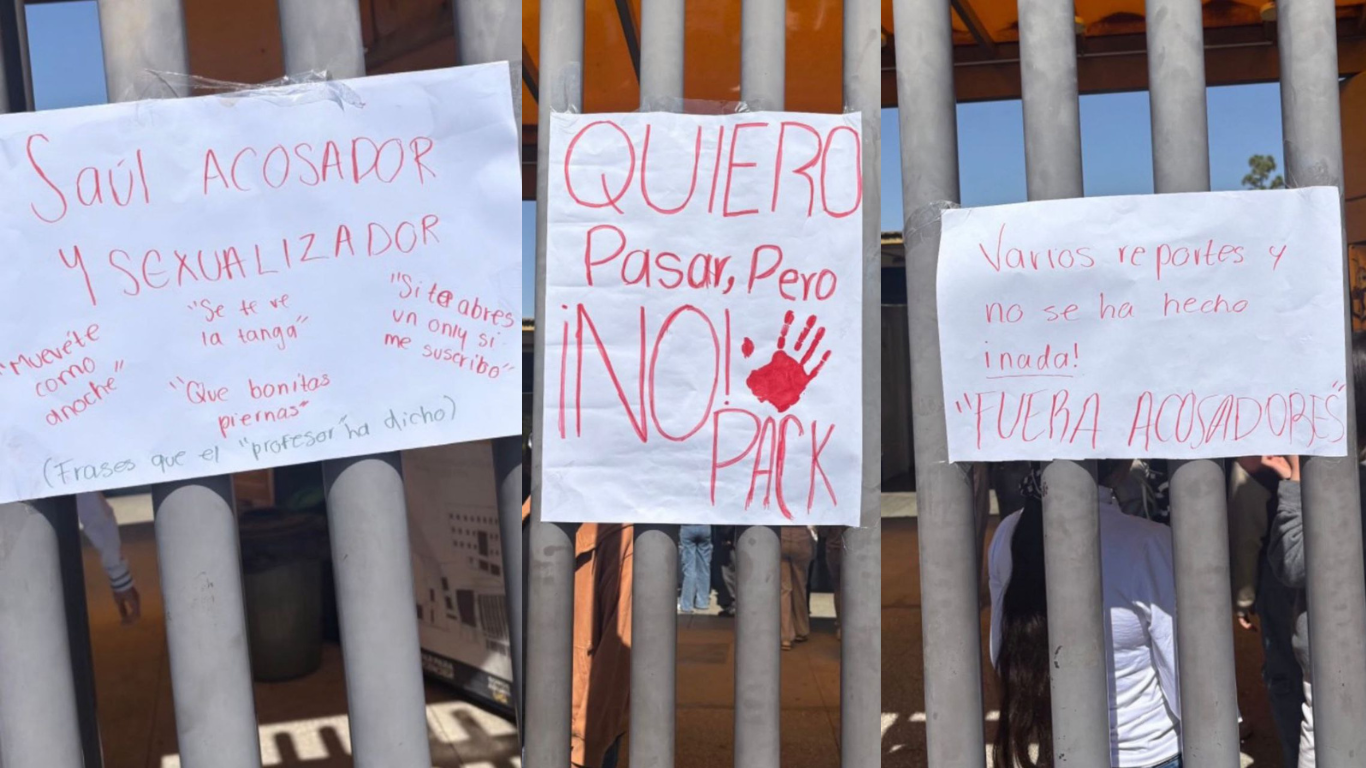 Saúl ACOSADOR
Y SEXUALIZADOR
"Muevéte
como
anoche"
"Se te ve
la tanga"
"Que bonitas
piernas"
"Si te abres
un only si
me suscribo"
(Frases que el "profesor" ha dicho)
QUIERO
Pasar, Pero
¡NO!
PACK
Varios reportes y
no se ha hecho
¡nada!
"FUERA ACOSADORES"